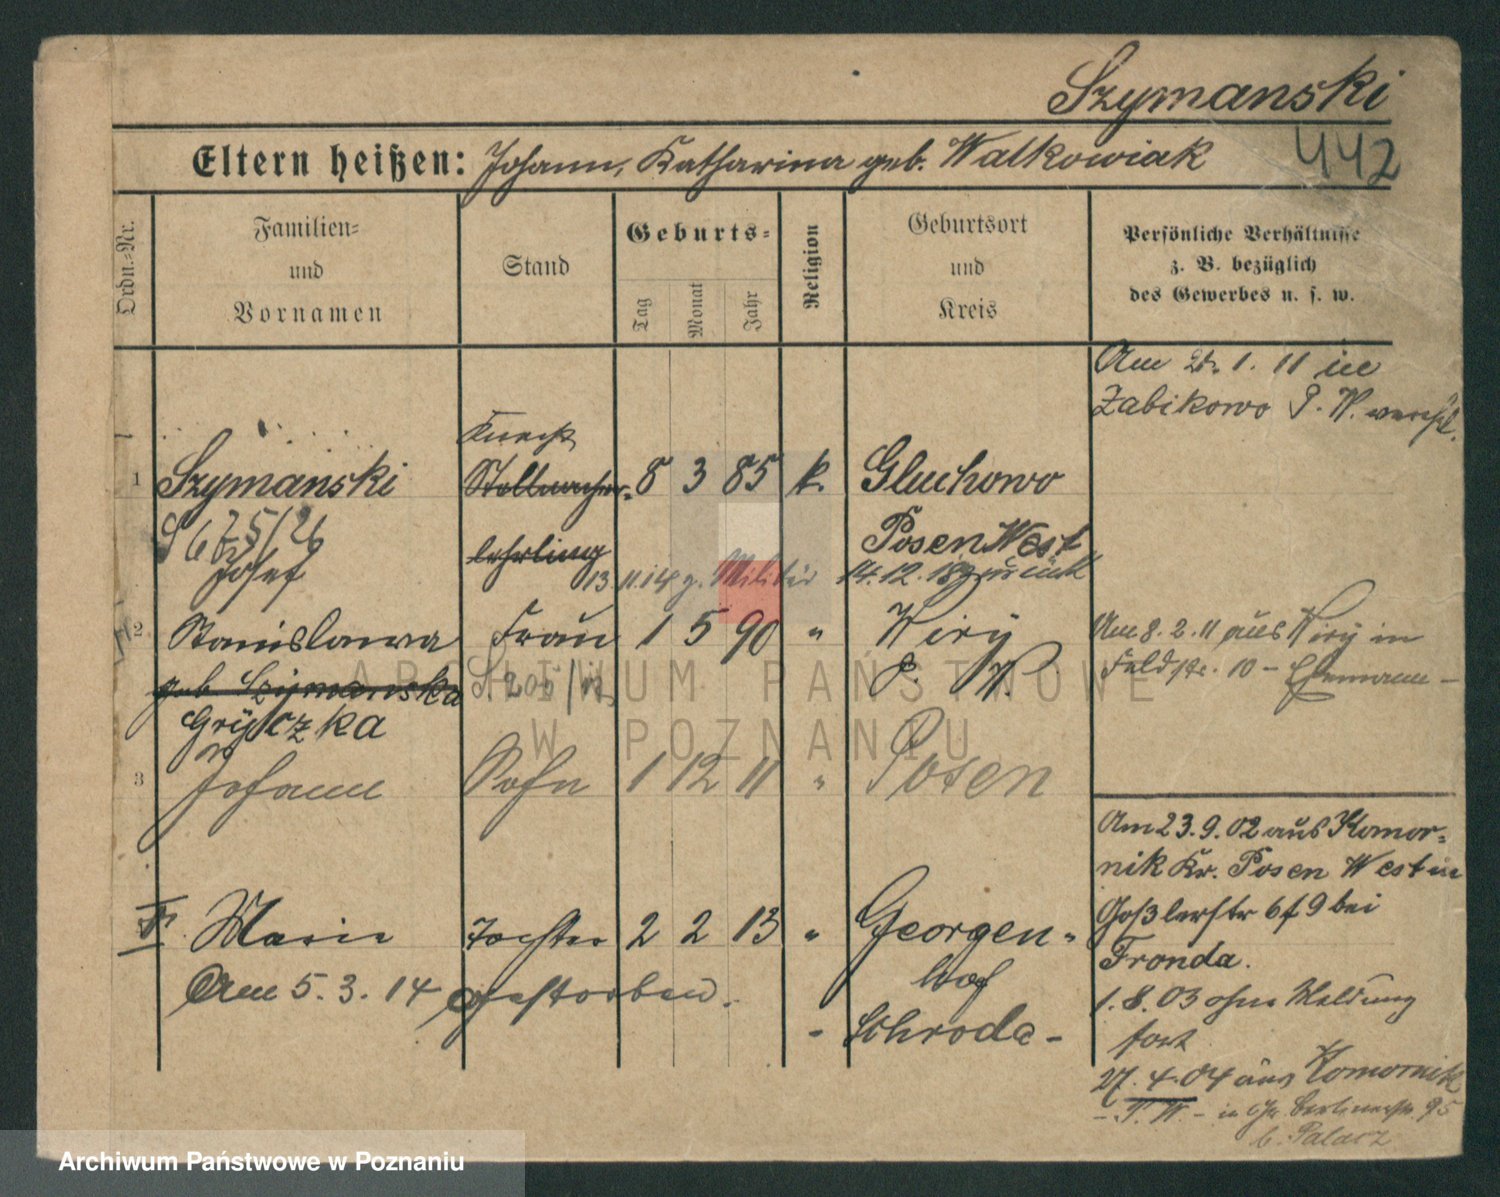 Szymanski
442
Eltern heißen: Johann, Katharina geb. Walkowiak
Ordn.=Nr.
Familien=
und
Vornamen
Stand
Geburts=
Tag
Monat
Jahr
Religion
Geburtsort
und
Kreis
Persönliche Verhältnisse
z. B. bezüglich
des Gewerbes u. s. w.
Am 1. 11 in
Zabikowo P. W.
Knecht
1 Szymanski Stellmacher- 8 3 85 k. Gluchowo
S 675/26
Josef lehrling Posen West
13 11.14 z. Militär 14.12.18 zurück
2 Stanislawa Frau 1 5 90 " Wiry
Am 8. 2. 11 aus Wiry in
Feldstr. 10 - Ehemann -
geb Szymanska P. W.
Gryczka
3 Johann Sohn 1 12 11 " Posen
Am 23. 9. 02 aus Komor=
nik Kr. Posen West in
Goßlerstr 6 f 9 bei
Fronda.
1. 8. 03 ohne Meldung
fort
27. 4. 04 aus Komornik
- P. W. - in 95
b. Palacz
Marie Tochter 2 2 13 " Georgen=
hof
Am 5. 3. 14 gestorben.
- Schroda -
ARCHIWUM PAŃSTWOWE
W POZNANIU
Archiwum Państwowe w Poznaniu